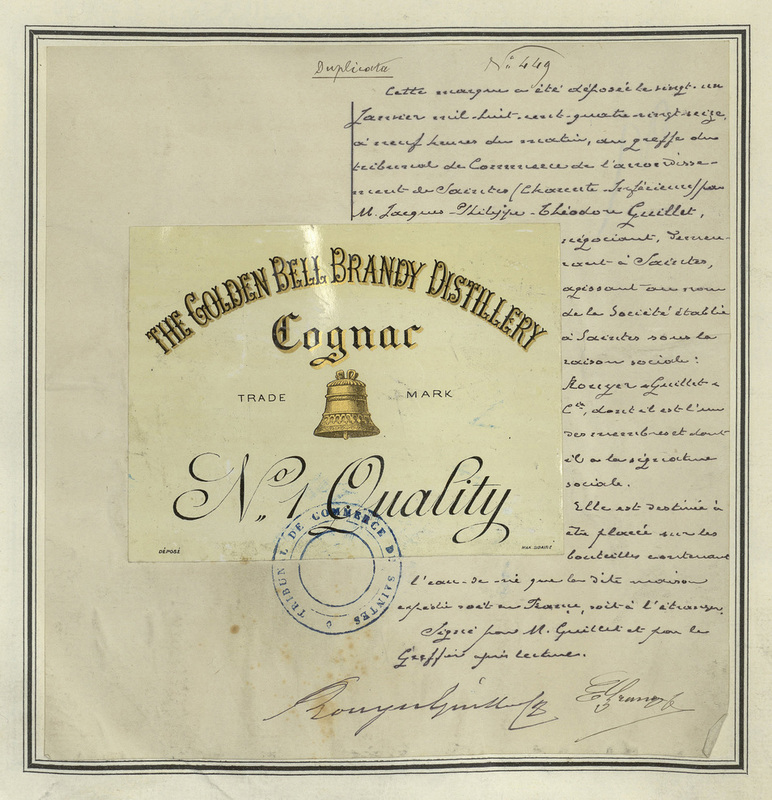 Duplicata
N° 449
Cette marque a été déposée le vingt-un
Janvier mil-huit-cent-quatre-vingt-seize,
à neuf heures du matin, au greffe du
tribunal de Commerce de l'arrondisse-
ment de Saintes (Charente-Inférieure) par
M. Jacques-Philippe-Théodore Guillet,
négociant, demeu-
rant à Saintes,
agissant au nom
de la Société établie
à Saintes sous la
raison sociale:
Rouyer Guillet &
Cie, dont il est l'un
des membres et dont
il a la signature
sociale.
Elle est destinée à
être placée sur les
bouteilles contenant
l'eau-de-vie que la dite maison
expédie soit en France, soit à l'étranger.
Signé par M. Guillet et par le
Greffier après lecture.
THE GOLDEN BELL BRANDY DISTILLERY
Cognac
TRADE MARK
No. 1 Quality
DÉPOSÉ
TRIBUNAL DE COMMERCE DE SAINTES
Rouyer Guillet &